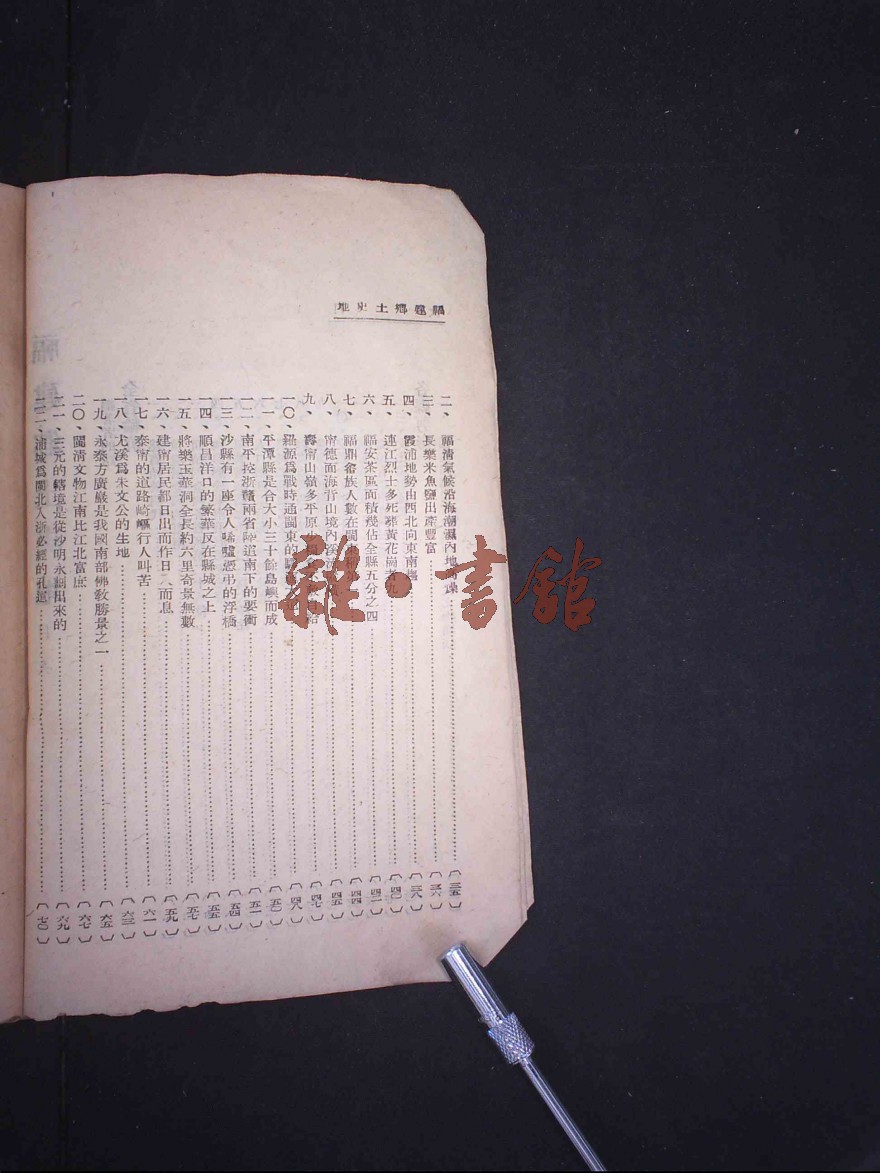 福建鄉土史地
二、福清氣候沿海潮濕內地高燥……（三五）
三、長樂米魚鹽出產豐富……（三六）
四、霞浦地勢由西北向東南……（三八）
五、連江烈士多死葬黃花崗……（四〇）
六、福安茶區面積幾佔全縣五分之四……（四二）
七、福鼎畬族人數在閩……（四四）
八、甯德面海背山境內溪流……（四五）
九、壽甯山嶺多平原小……（四七）
一〇、羅源為戰時通閩東的……（四八）
一一、平潭縣是合大小三十餘島嶼而成……（五〇）
一二、南平控浙贛兩省陸道南下的要衝……（五一）
一三、沙縣有一座令人唏噓憑弔的浮橋……（五四）
一四、順昌洋口的繁華反在縣城之上……（五五）
一五、將樂玉華洞全長約六里奇景無數……（五七）
一六、建甯居民都日出而作日入而息……（五九）
一七、泰甯的道路崎嶇行人叫苦……（六一）
一八、尤溪為朱文公的生地……（六三）
一九、永泰方廣巖是我國南部佛敎勝景之一……（六五）
二〇、閩清文物江南比江北富庶……（六七）
二一、三元的轄境是從沙明永劃出來的……（六九）
二二、浦城為閩北入浙必經的孔道……（七〇）
雜·書館